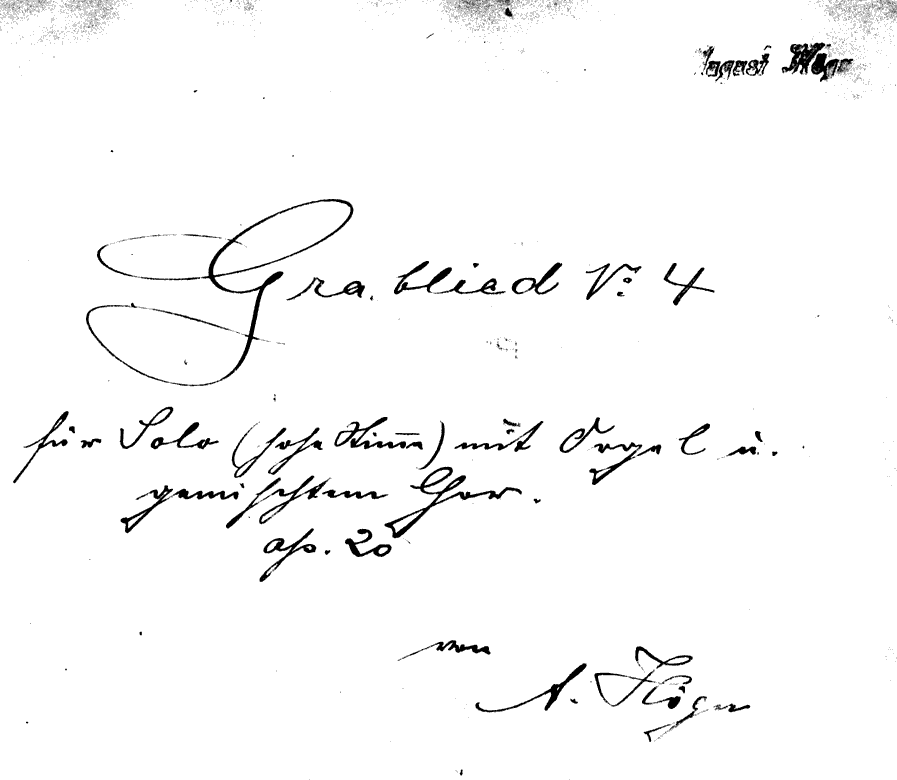 August
Grablied No. 4
für Solo (hohe Stimme) mit Orgel u.
gemischtem Chor.
op. 20
von
A. Höger